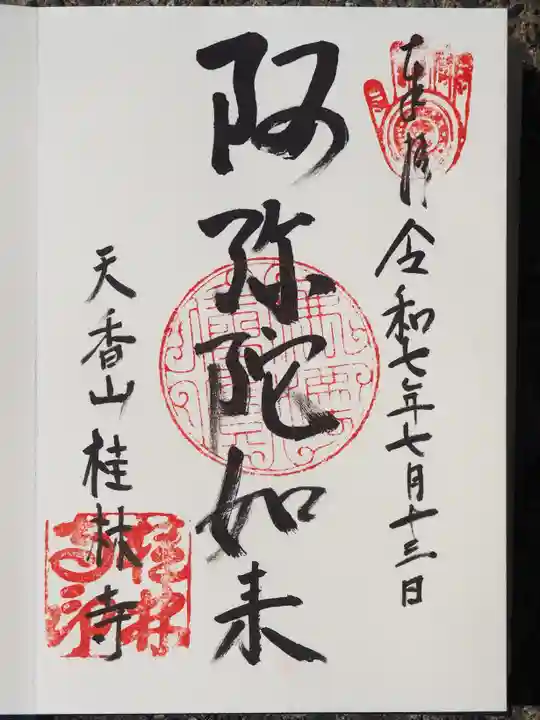 奉拝 令和七年七月十三日
阿弥陀如来
天香山桂林寺